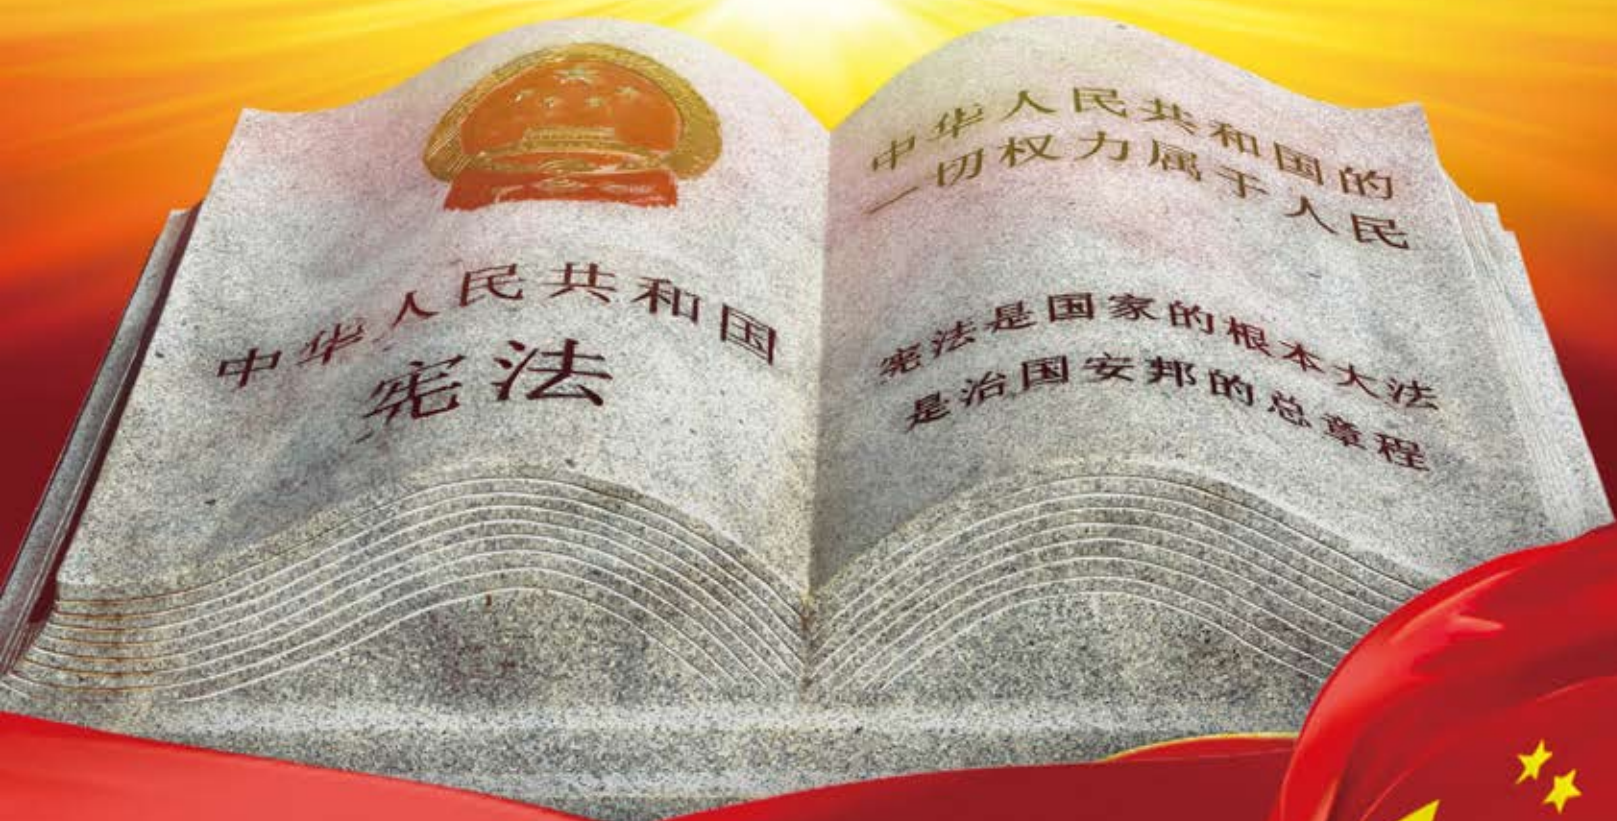 中华人民共和国
宪法
中华人民共和国的
一切权力属于人民
宪法是国家的根本大法
是治国安邦的总章程